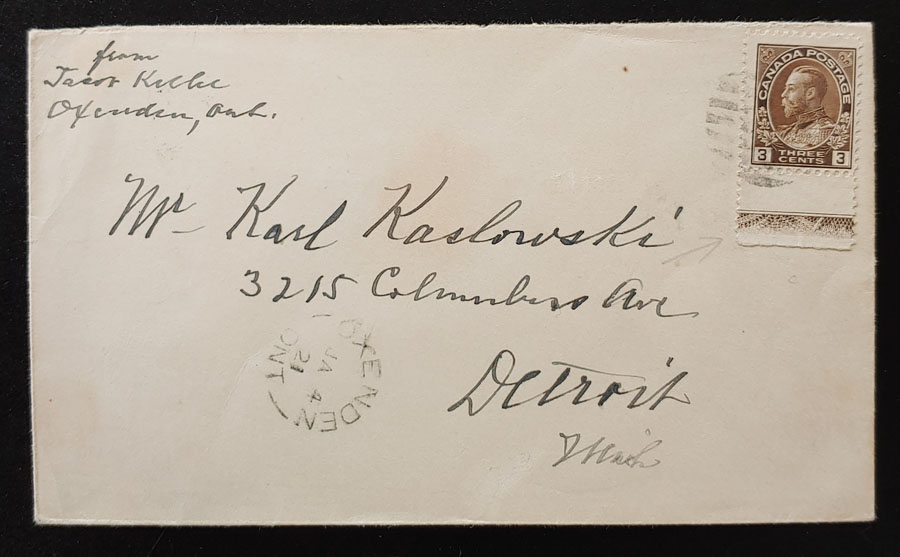 from
Jacob Kelbe
Oxenden, Ont.
CANADA POSTAGE
3 THREE CENTS 3
Mr Karl Kaslowski
3215 Columbus Ave
Detroit
Mich
OXENDEN
JA 4
21
ONT